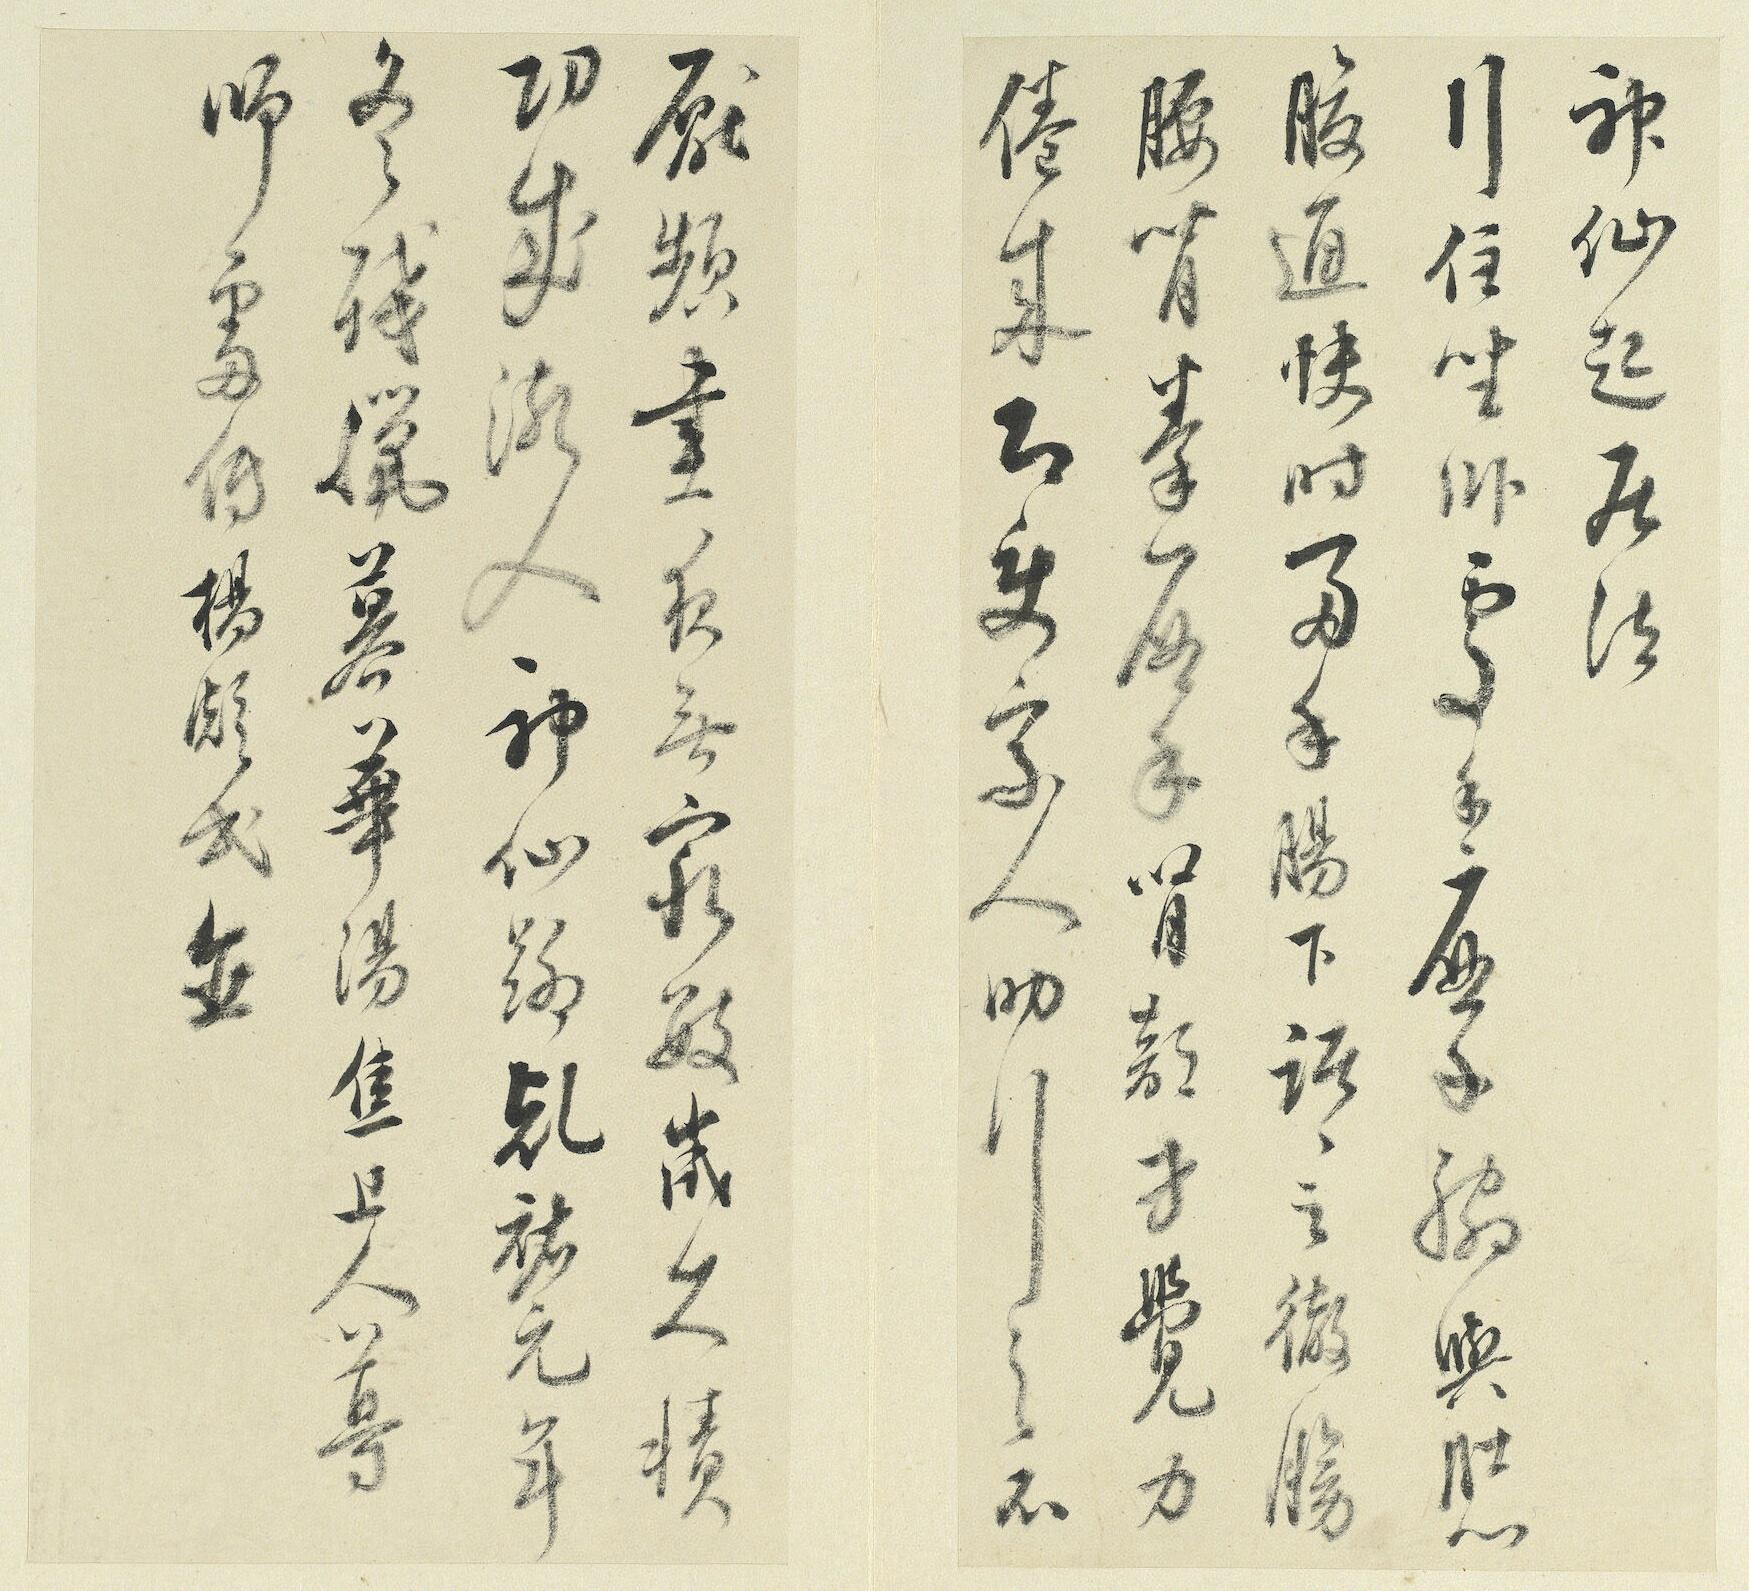 神仙起居法
行住坐卧處手摩手脅與肚心
腹通快時兩手腸下踞踞之徹膀
腰背拳摩手腎部才覺力
倦來即使家人助行之不
厭頻晝夜無窮數歲久積
功成漸入神仙路乾祐元年
冬殘臘暮華陽焦上人尊
師處傳楊凝式